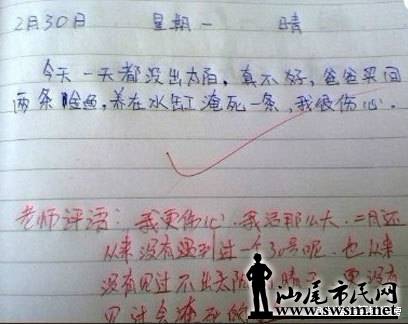 2月30日 星期一 晴
今天一天都没出太阳,真不好,爸爸买回
两条鱼,养在水缸淹死一条,我很伤心.
老师评语:我更伤心.我活那么大.二月还
从来没有遇到过一个30号呢.也从来
没有见过不出太阳的晴天.更没有
见过会淹死的
汕尾市民网
www.swsm.net